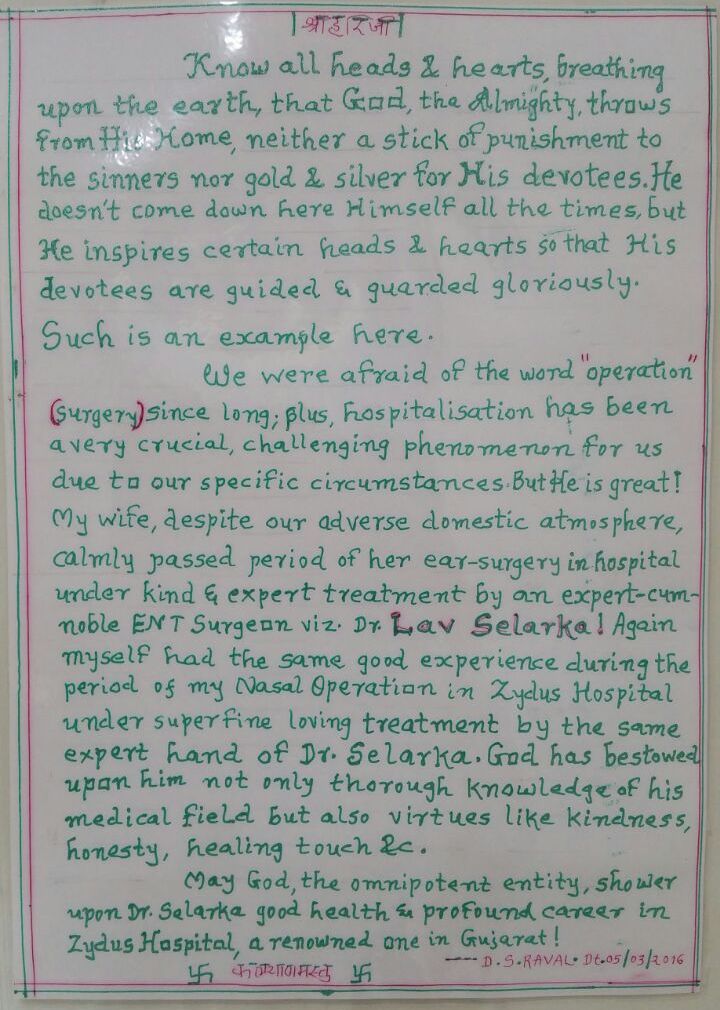 |श्रीहरिजी|
Know all heads & hearts, breathing
upon the earth, that God, the Almighty, throws
from His Home, neither a stick of punishment to
the sinners nor gold & silver for His devotees. He
doesn't come down here Himself all the times, but
He inspires certain heads & hearts so that His
devotees are guided & guarded gloriously.
Such is an example here.
We were afraid of the word "operation"
(surgery) since long; plus, hospitalisation has been
a very crucial, challenging phenomenon for us
due to our specific circumstances. But He is great!
My wife, despite our adverse domestic atmosphere,
calmly passed period of her ear-surgery in hospital
under kind & expert treatment by an expert-cum-
noble ENT Surgeon viz. Dr. Lav Selarka! Again
myself had the same good experience during the
period of my Nasal Operation in Zydus Hospital
under superfine loving treatment by the same
expert hand of Dr. Selarka. God has bestowed
upon him not only thorough knowledge of his
medical field but also virtues like kindness,
honesty, healing touch &c.
May God, the omnipotent entity, shower
upon Dr. Selarka good health & profound career in
Zydus Hospital, a renowned one in Gujarat!
---- D.S.RAVAL. Dt.05/03/2016
卐 कल्याणमस्तु 卐